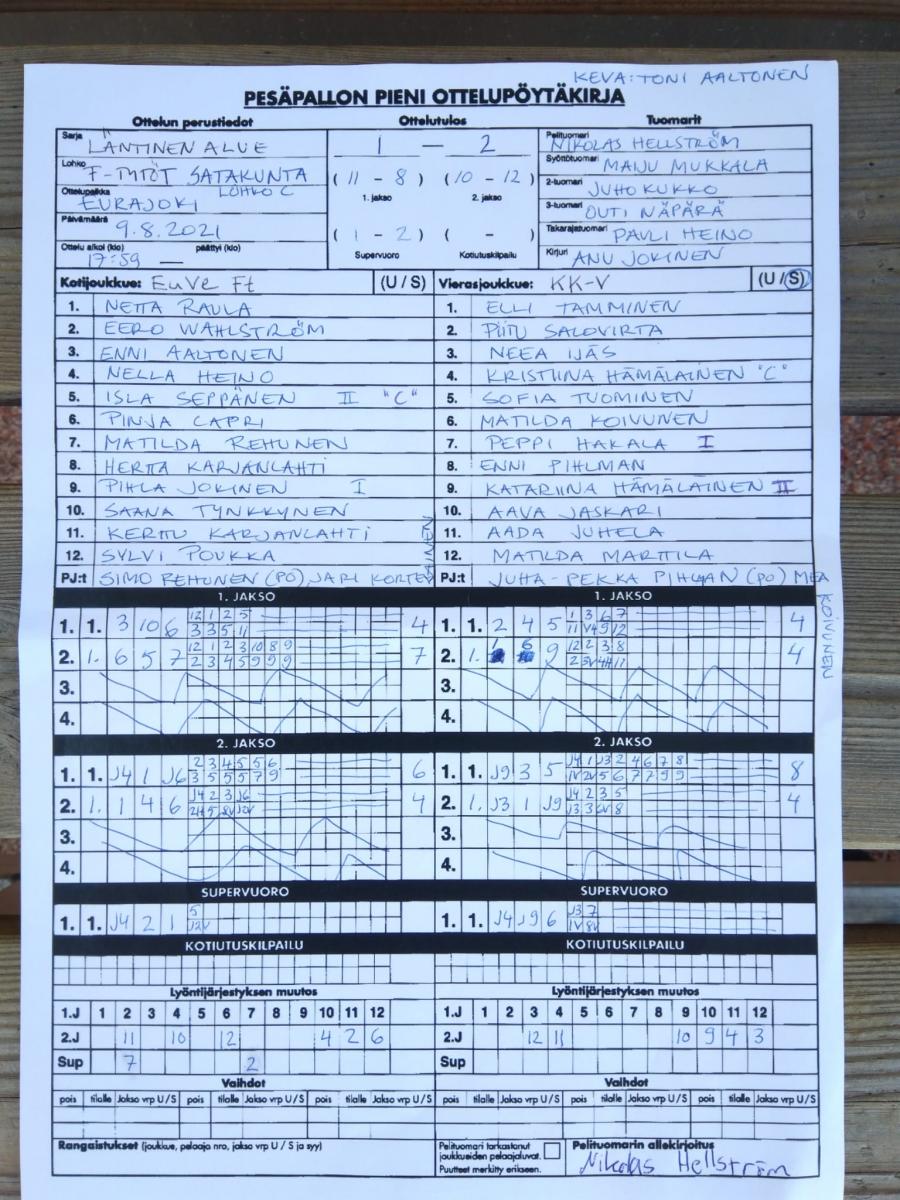 KEVA: TONI AALTONEN
PESÄPALLON PIENI OTTELUPÖYTÄKIRJA
Ottelun perustiedot
Sarja LÄNTINEN ALUE
Lohko F-TYTÖT SATAKUNTA
LOHKO C
Ottelupaikka EURAJOKI
Päivämäärä 9.8.2021
Ottelu alkoi (klo) päättyi (klo)
17:59 —
Ottelutulos
1 — 2
(11 - 8) (10 - 12)
1. jakso 2. jakso
(1 - 2) ( - )
Supervuoro Kotiutuskilpailu
Tuomarit
Pelituomari NIKOLAS HELLSTRÖM
Syöttötuomari MAIJU MUKKALA
2-tuomari JUHO KUKKO
3-tuomari OUTI NÄPÄRÄ
Takarajatuomari PAULI HEINO
Kirjuri ANU JOKINEN
Kotijoukkue: EuVe Ft (U / S)
1. NETTA RAULA
2. EERO WAHLSTRÖM
3. ENNI AALTONEN
4. NELLA HEINO
5. ISLA SEPPÄNEN II "C"
6. PINJA CAPRI
7. MATILDA REHUNEN
8. HERTTA KARJANLAHTI
9. PIHLA JOKINEN I
10. SAANA TYNKKYNEN
11. KERTTU KARJANLAHTI
12. SYLVI POUKKA
PJ:t SIMO REHUNEN (PO), JARI KORTELAINEN
Vierasjoukkue: KK-V (U / S)
1. ELLI TAMMINEN
2. PIITU SALOVIRTA
3. NEEA IJÄS
4. KRISTIINA HÄMÄLÄINEN "C"
5. SOFIA TUOMINEN
6. MATILDA KOIVUNEN
7. PEPPI HAKALA I
8. ENNI PIHLMAN
9. KATARIINA HÄMÄLÄINEN II
10. AAVA JASKARI
11. AADA JUHELA
12. MATILDA MARTTILA
PJ:t JUHA-PEKKA PIHLMAN (PO) MEA KOIVUNEN
1. JAKSO
1. 1. 3 10 6 12 1 2 5 4
3 3 5 11
2. 1. 6 5 7 12 1 2 3 10 8 9 7
2 3 4 5 9 9 9
3.
4.
1. JAKSO
1. 1. 2 4 5 1 3 6 7 4
11 V4 9 12
2. 1. 6 9 12 2 3 8 4
2 3V 4H 11
3.
4.
2. JAKSO
1. 1. J4 1 J6 2 3 4 5 5 6 6
3 5 5 5 7 9
2. 1. 1 4 6 J4 2 3 J6 4
2H 5 8V J2V
3.
4.
2. JAKSO
1. 1. J9 3 5 J4 1 J3 2 4 6 7 8 8
1V 2V 5 6 7 7 9 9
2. 1. J3 1 J9 J4 2 3 5 4
J3 3 6V 8
3.
4.
SUPERVUORO
1. 1. J4 2 1 5
J2V
SUPERVUORO
1. 1. J4 J9 6 J3 7
1V 8V
KOTIUTUSKILPAILU
KOTIUTUSKILPAILU
Lyöntijärjestyksen muutos
1.J 1 2 3 4 5 6 7 8 9 10 11 12
2.J 11 10 12 4 2 6
Sup 7 2
Lyöntijärjestyksen muutos
1.J 1 2 3 4 5 6 7 8 9 10 11 12
2.J 12 11 10 9 4 3
Sup
Vaihdot
pois tilalle Jakso vrp U / S pois tilalle Jakso vrp U / S pois tilalle Jakso vrp U / S
Vaihdot
pois tilalle Jakso vrp U / S pois tilalle Jakso vrp U / S pois tilalle Jakso vrp U / S
Rangaistukset (joukkue, pelaaja nro, jakso vrp U / S ja syy)
Pelituomari tarkastanut
joukkueiden pelaajaluvat.
Puutteet merkitty erikseen.
Pelituomarin allekirjoitus
Nikolas Hellström